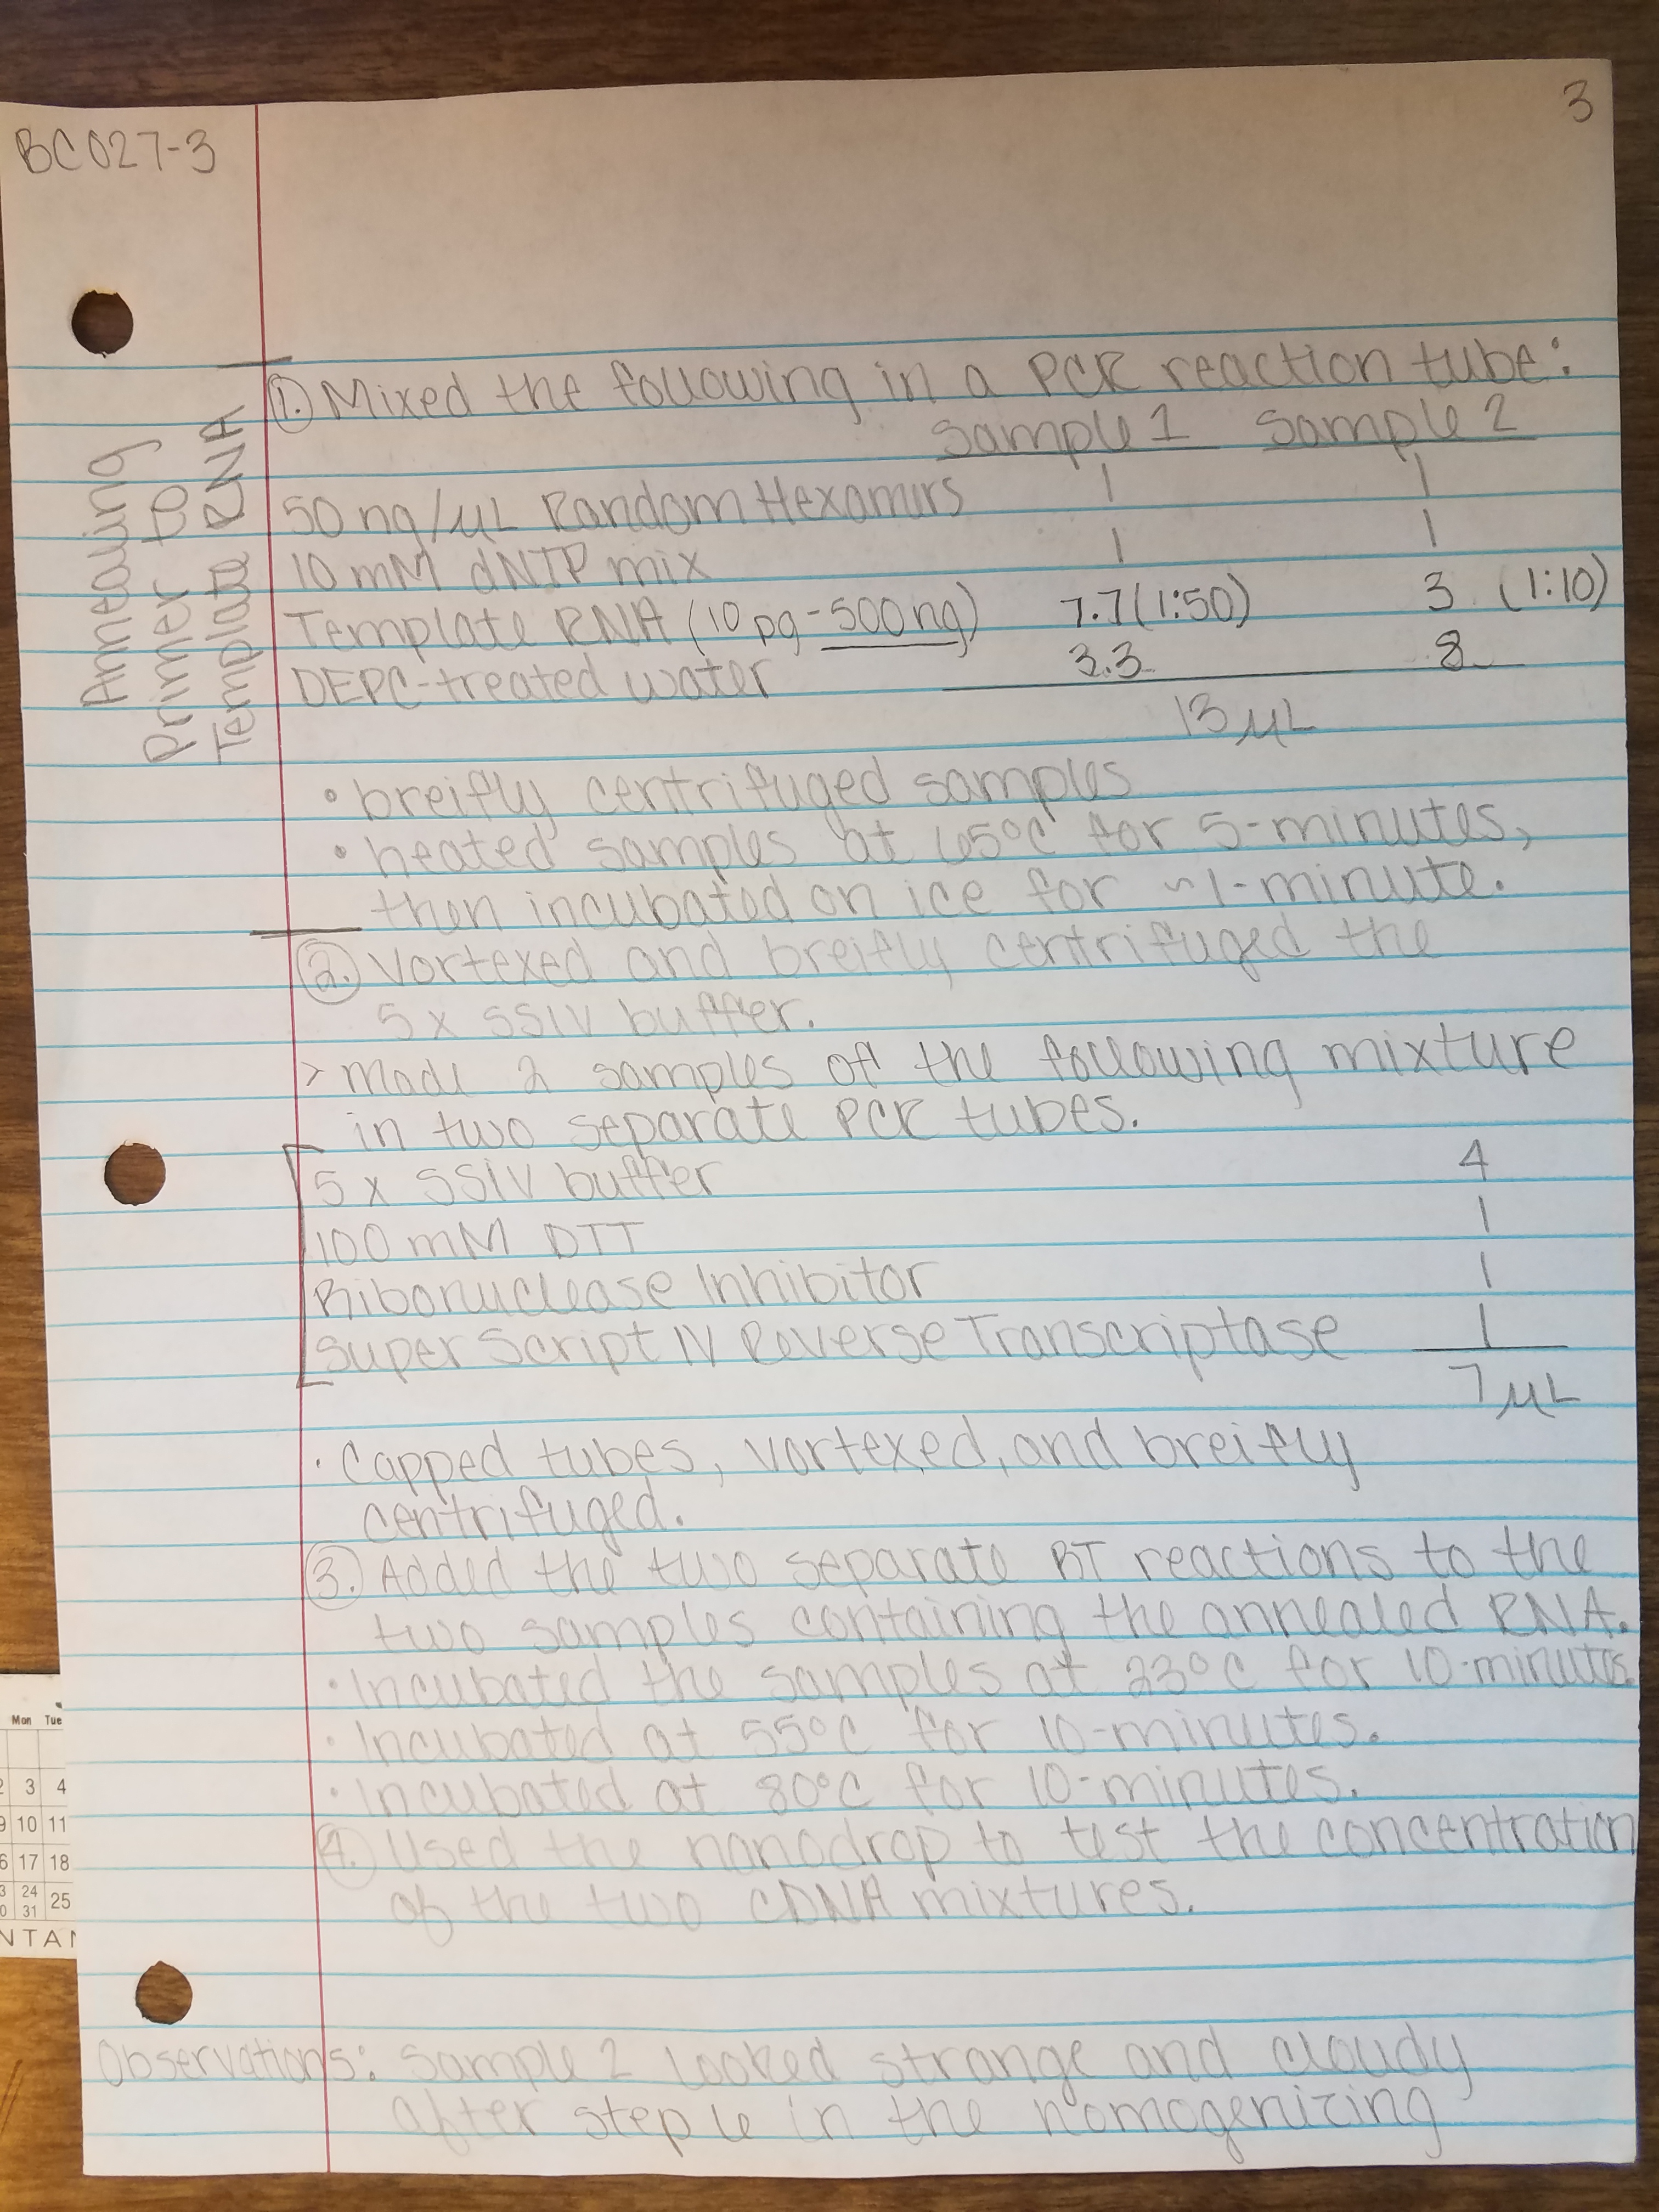 3
BC027-3
Annealing
Primer to
Template RNA
1. Mixed the following in a PCR reaction tube:
Sample 1 Sample 2
50 ng/µL Random Hexamers 1 1
10 mM dNTP mix 1 1
Template RNA (10 pg-500ng) 7.7 (1:50) 3 (1:10)
DEPC-treated water 3.3 8
13 µL
• breifly centrifuged samples
• heated samples at 65°C for 5-minutes,
then incubated on ice for ~1-minute.
2. Vortexed and breifly centrifuged the
5x SSIV buffer.
> Made 2 samples of the following mixture
in two separate PCR tubes.
5x SSIV buffer 4
100 mM DTT 1
Ribonuclease Inhibitor 1
SuperScript IV Reverse Transcriptase 1
7 µL
• Capped tubes, vortexed, and breifly
centrifuged.
3. Added the two separate RT reactions to the
two samples containing the annealed RNA.
• Incubated the samples at 23°C for 10-minutes.
• Incubated at 55°C for 10-minutes.
• Incubated at 80°C for 10-minutes.
4. Used the nanodrop to test the concentration
of the two cDNA mixtures.
Observations: Sample 2 looked strange and cloudy
after step 6 in the homogenizing
Mon Tue
3 4
10 11
17 18
24 25
31